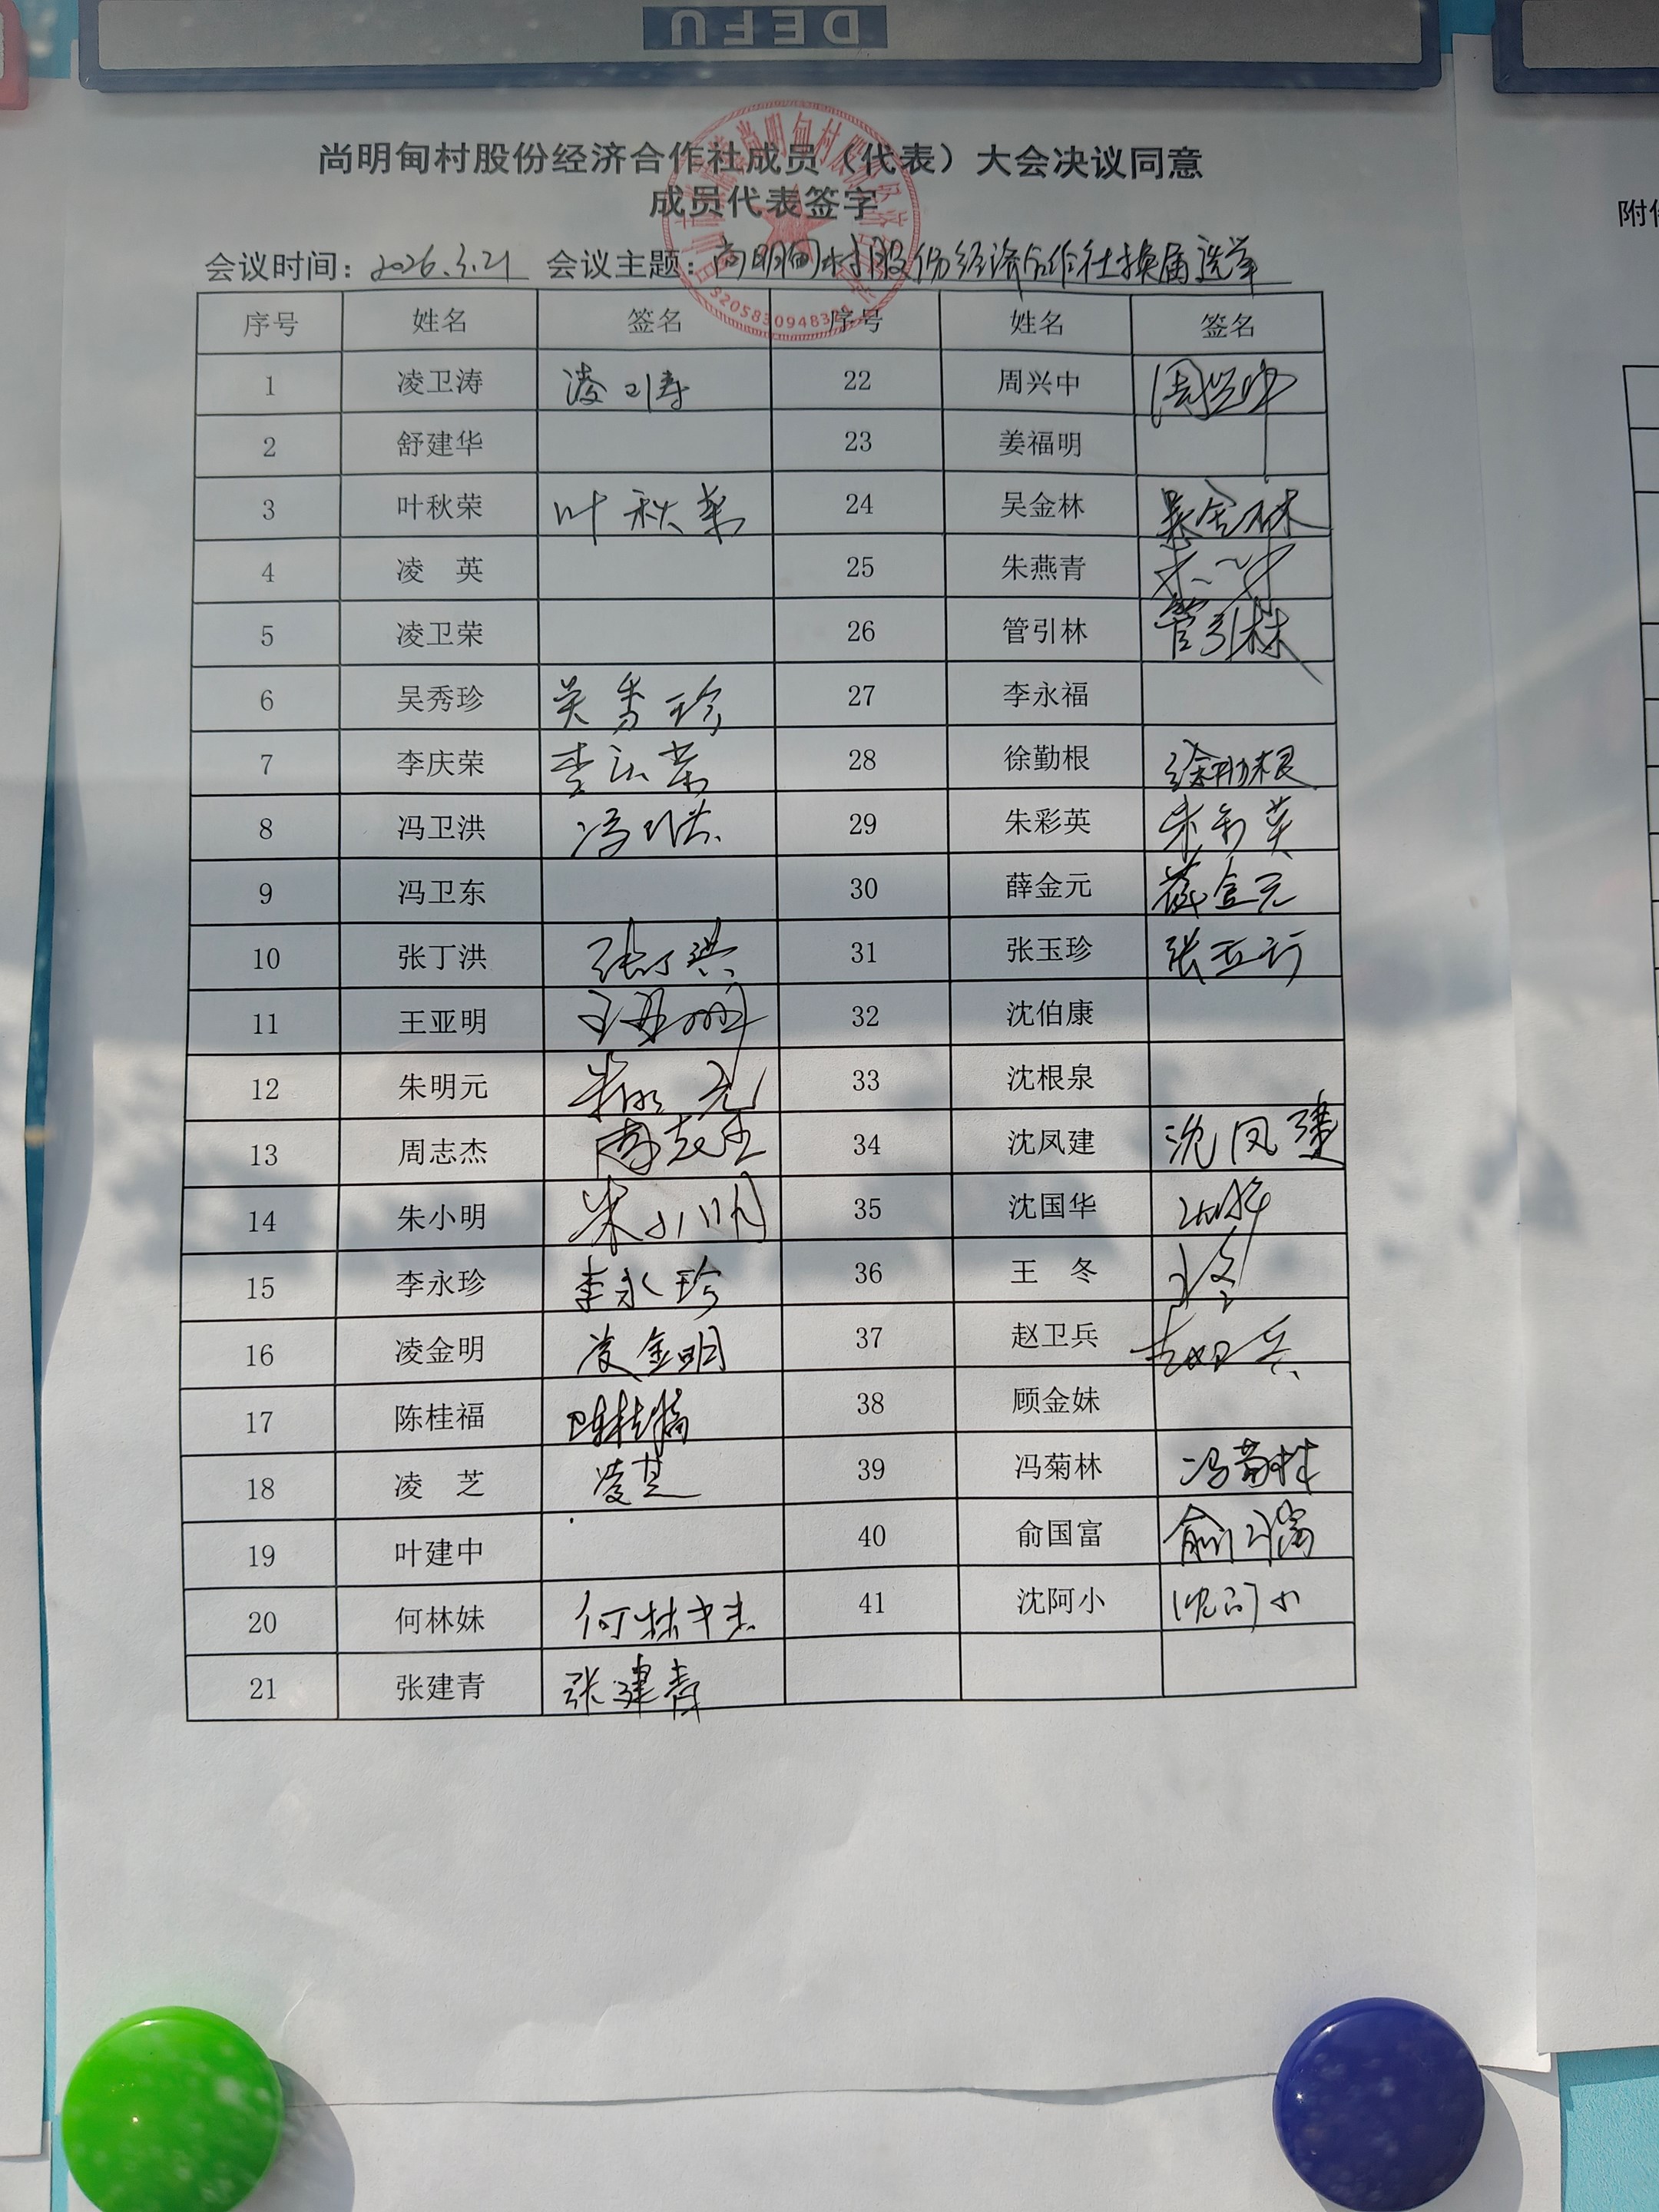 DEFU
尚明甸村股份经济合作社成员（代表）大会决议同意
成员代表签字
会议时间：2026.3.21 会议主题：尚明甸村股份经济合作社换届选举
3205830948
附件
序号 姓名 签名 序号 姓名 签名
1 凌卫涛 凌卫涛 22 周兴中 周兴中
2 舒建华 23 姜福明
3 叶秋荣 叶秋荣 24 吴金林 吴金林
4 凌 英 25 朱燕青
5 凌卫荣 26 管引林 管引林
6 吴秀珍 吴秀珍 27 李永福
7 李庆荣 李庆荣 28 徐勤根 徐勤根
8 冯卫洪 冯卫洪 29 朱彩英 朱彩英
9 冯卫东 30 薛金元 薛金元
10 张丁洪 张丁洪 31 张玉珍 张玉珍
11 王亚明 王亚明 32 沈伯康
12 朱明元 朱明元 33 沈根泉
13 周志杰 周志杰 34 沈凤建 沈凤建
14 朱小明 朱小明 35 沈国华 沈国华
15 李永珍 李永珍 36 王 冬 王冬
16 凌金明 凌金明 37 赵卫兵 赵卫兵
17 陈桂福 陈桂福 38 顾金妹
18 凌 芝 凌芝 39 冯菊林 冯菊林
19 叶建中 40 俞国富 俞国富
20 何林妹 何林妹 41 沈阿小 沈阿小
21 张建青 张建青